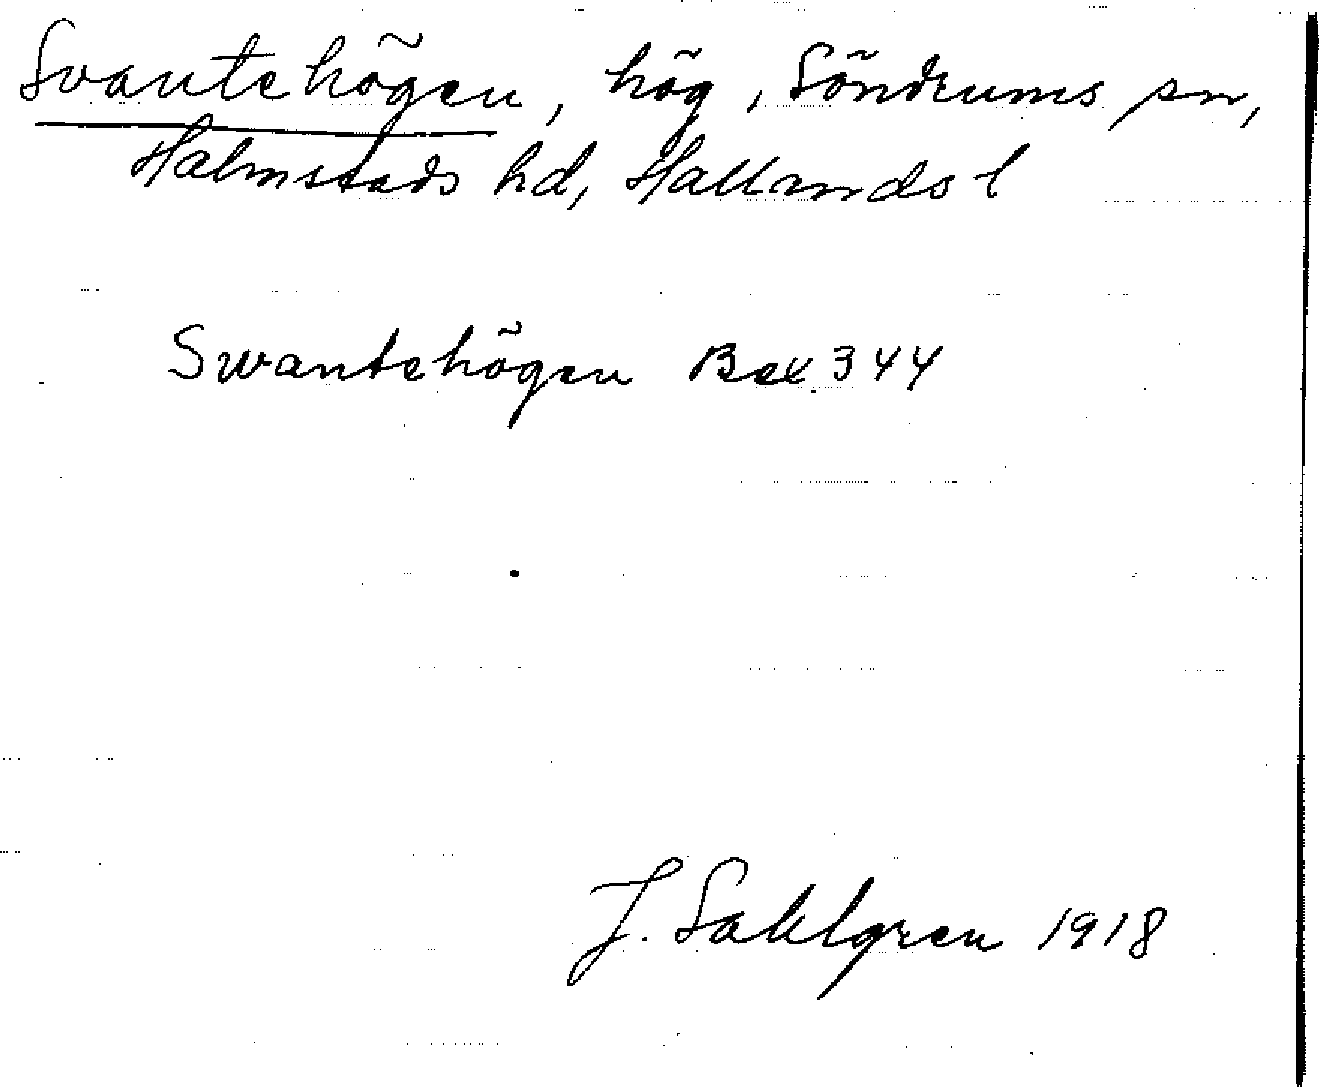 Svantehögen, hög, Söndrums sn,
Halmstads hd, Hallands l
Swantehögen Bex 344
J. Sahlgren 1918